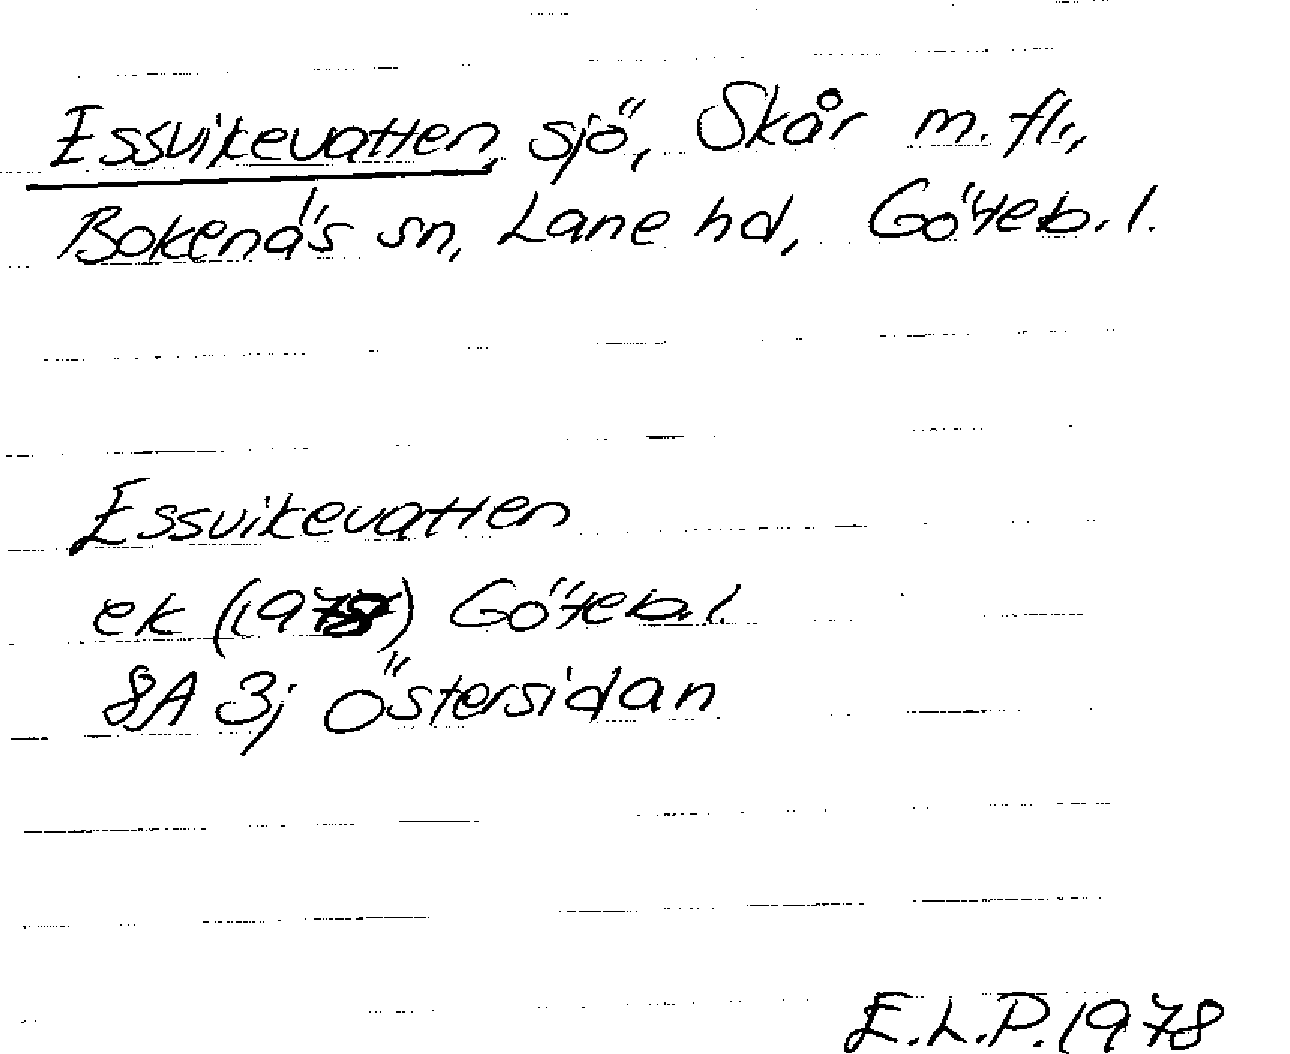 Essvikevatten, sjö, Skår m. fl.,
Bokenäs sn, Lane hd, Göteb. l.
Essvikevatten
ek (1978) Göteb. l.
8A 3j Östersidan
E.L.P. 1978